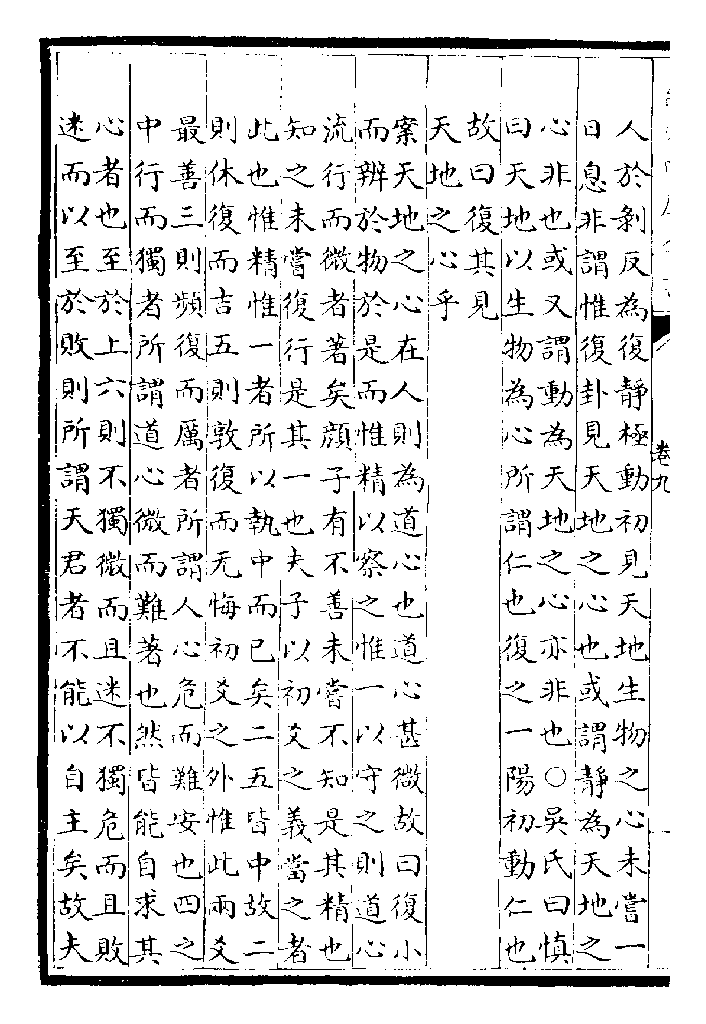 卷九
人於剝反為復靜極動初見天地生物之心未嘗一
日息非謂惟復卦見天地之心也或謂靜為天地之
心非也或又謂動為天地之心亦非也○吳氏曰慎
曰天地以生物為心所謂仁也復之一陽初動仁也
故曰復其見
天地之心乎
案天地之心在人則為道心也道心甚微故曰復小
而辨於物於是而惟精以察之惟一以守之則道心
流行而微者著矣顏子有不善未嘗不知是其精也
知之未嘗復行是其一也夫子以初爻之義當之者
此也惟精惟一者所以執中而已矣二五皆中故二
則休復而吉五則敦復而无悔初爻之外惟此兩爻
最善三則頻復而厲者所謂人心危而難安也四之
中行而獨者所謂道心微而難著也然皆能自求其
心者也至於上六則不獨微而且迷不獨危而且敗
迷而以至於敗則所謂天君者不能以自主矣故夫